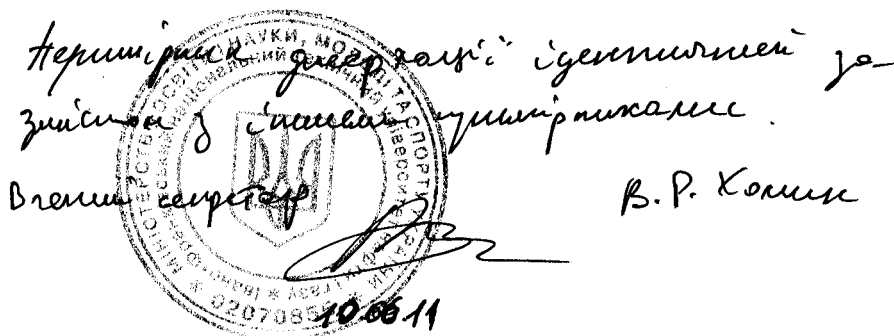 Примірник дисертації ідентичний за
змістом з іншими примірниками.
Вчений секретар
В. Р. Хомин
МІНІСТЕРСТВО ОСВІТИ І НАУКИ, МОЛОДІ ТА СПОРТУ УКРАЇНИ
10.06.11